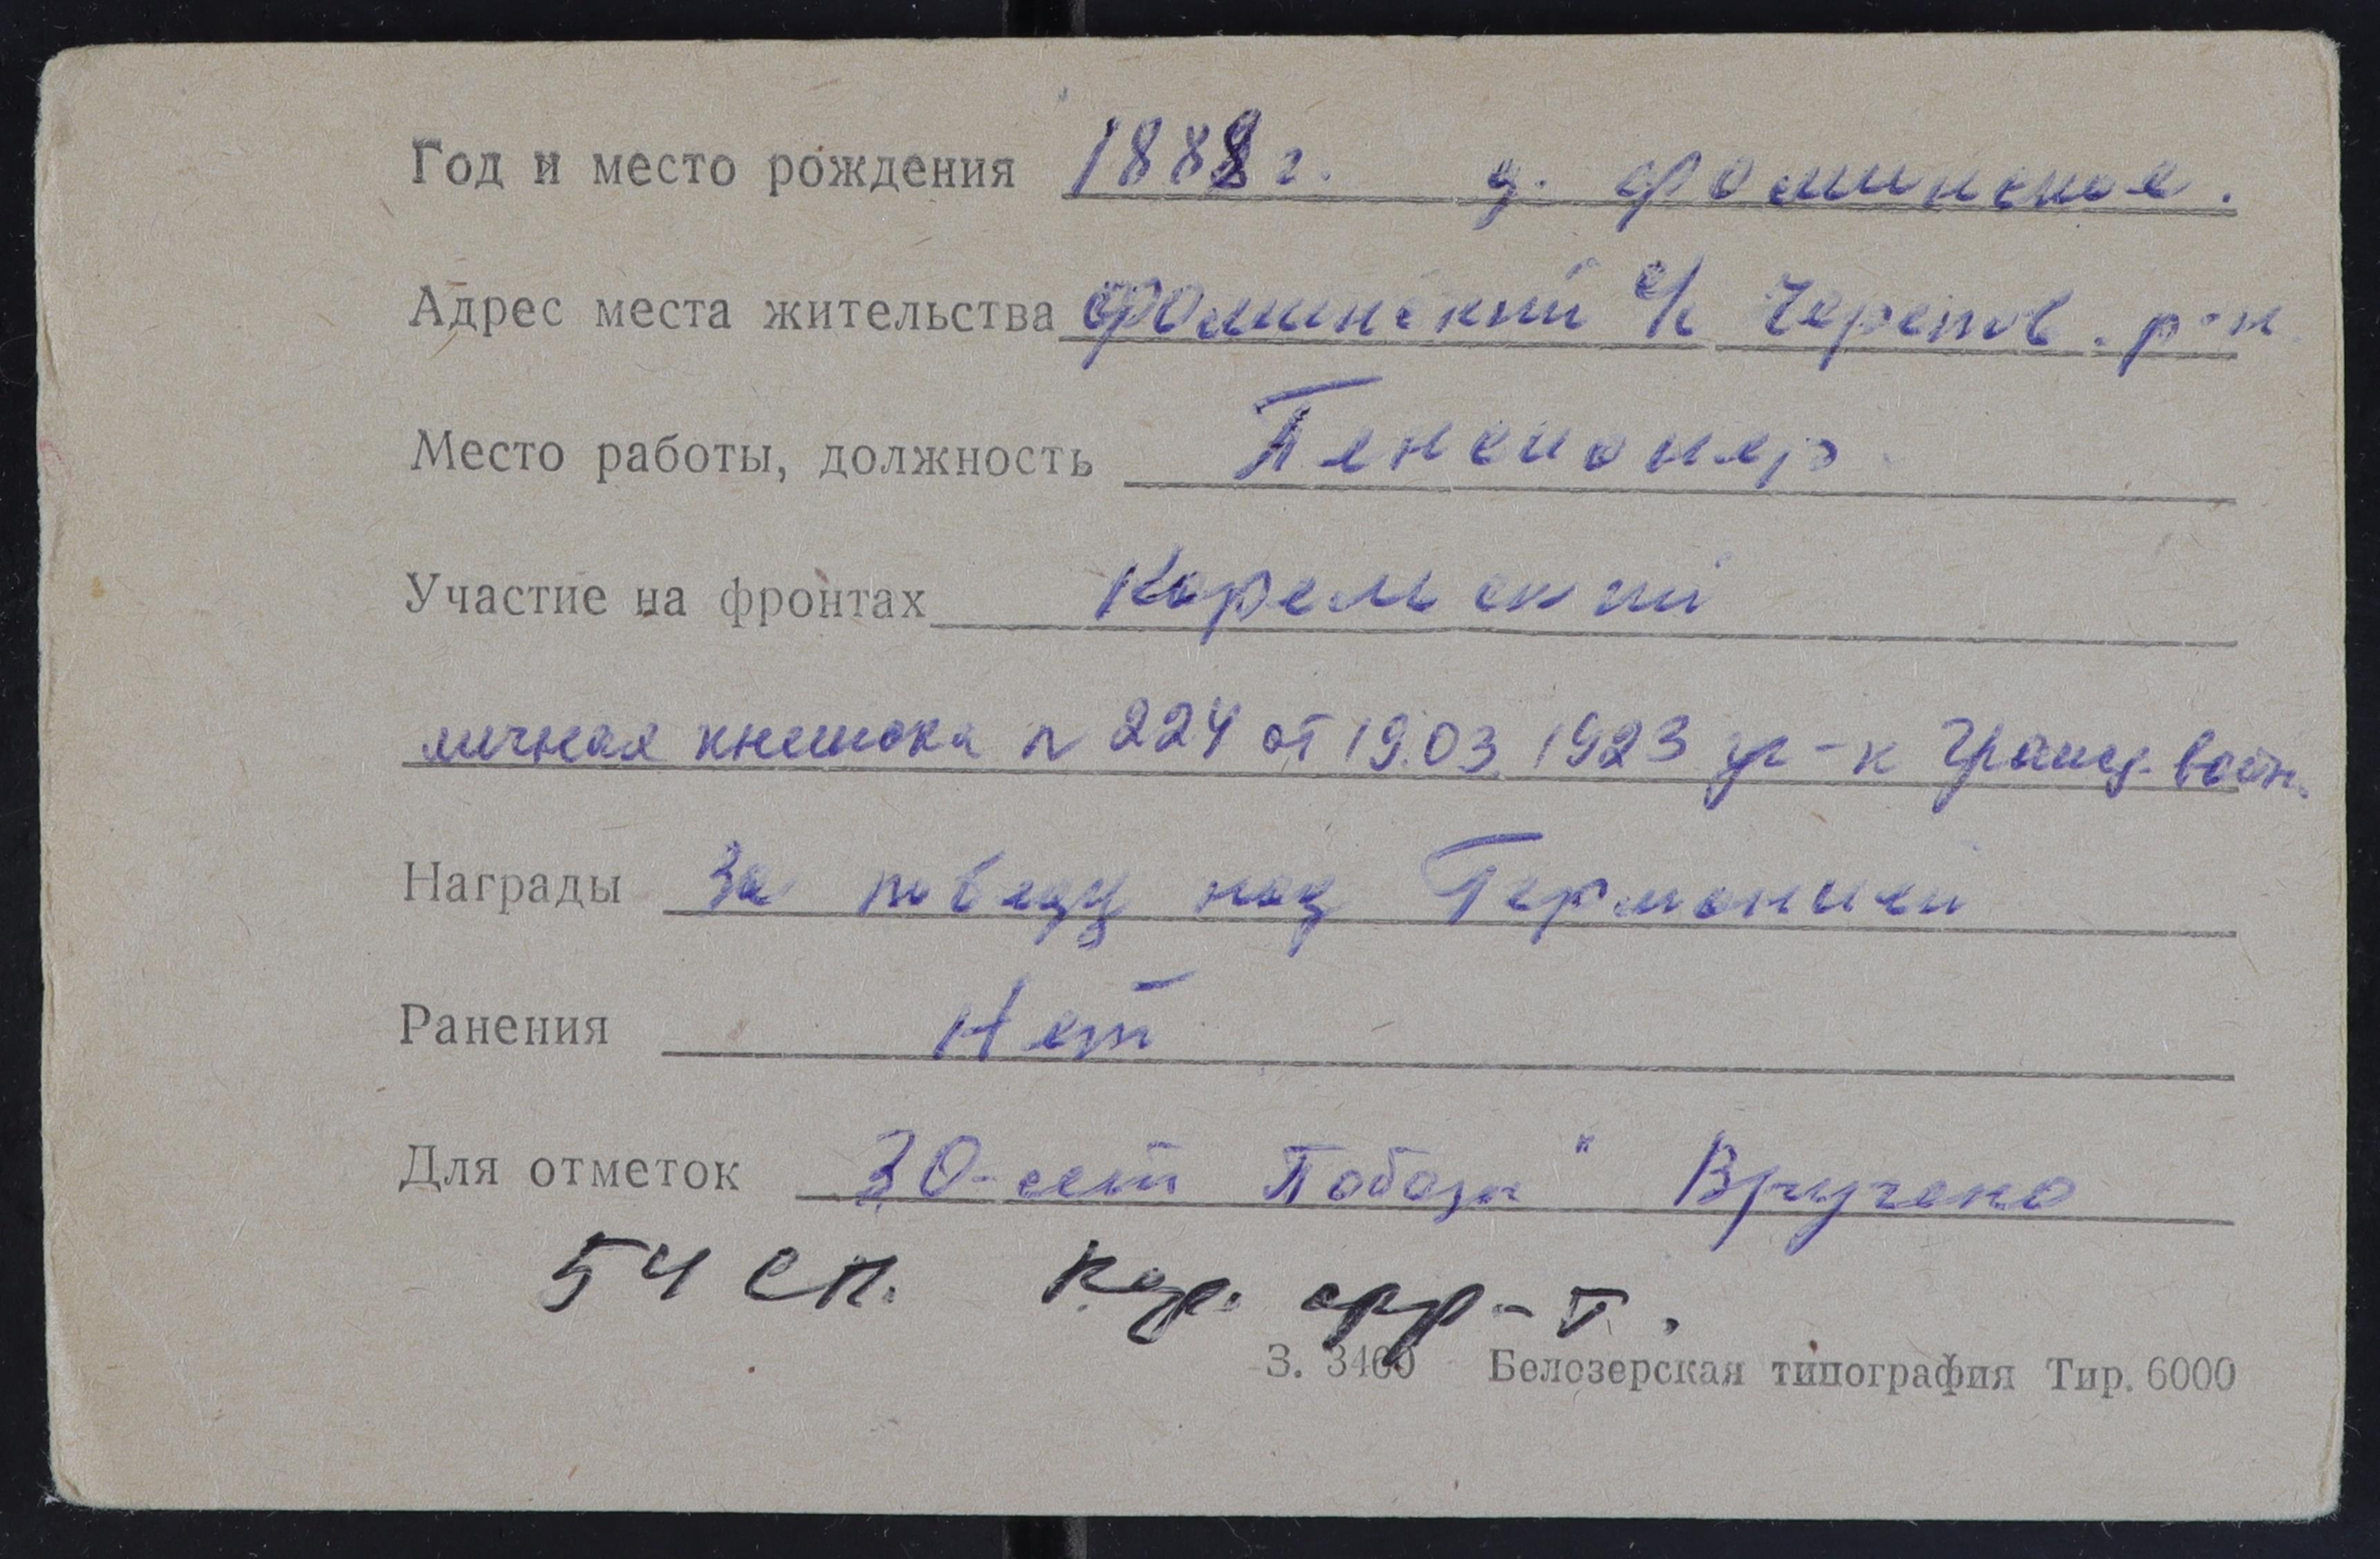 Год и место рождения 1888 г. д. Фоминская.
Адрес места жительства Фоминский с/с Черепов. р-н
Место работы, должность Пенсионер
Участие на фронтах Карельский
личная книжка № 224 от 19.03.1923 уч-к Гражд. войн.
Награды За победу над Германией
Ранения Нет
Для отметок 30-лет Победы" Вручено
54 сп. кар. фр-т.
З. 3460 Белозерская типография Тир. 6000